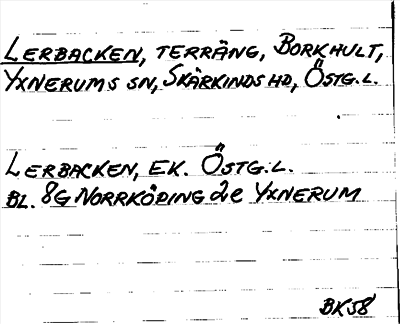 LERBACKEN, TERRÄNG, BORKHULT,
YXNERUMS SN, SKÄRKINDS HD, ÖSTG.L.
LERBACKEN, EK. ÖSTG.L.
BL. 8G NORRKÖPING 2e YXNERUM
BK58